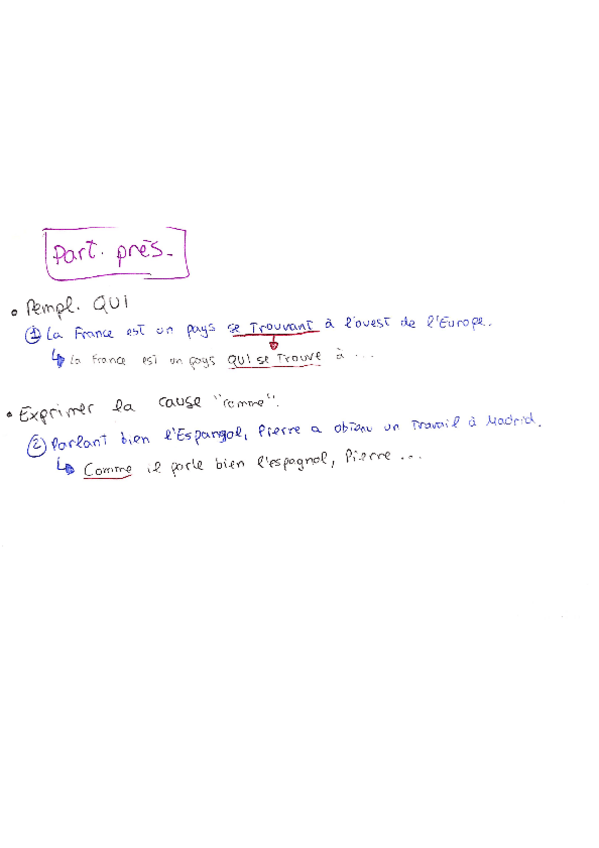 Part. prés.
• Rempl. QUI
① La France est un pays se trouvant à l'ouest de l'Europe.
↳ La France est un pays QUI se trouve à ...
• Exprimer la cause "comme".
② Parlant bien l'Espangol, Pierre a obtenu un travail à Madrid.
↳ Comme il parle bien l'espagnol, Pierre ...